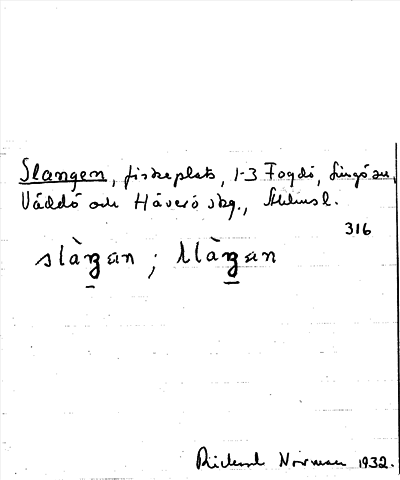 Slangen, fiskeplats, 1-3 Fogdö, Singö sn,
Väddö och Häverö skg., Sthlms l.
316
slàŋan ; llàŋan
Rickard Norman 1932.